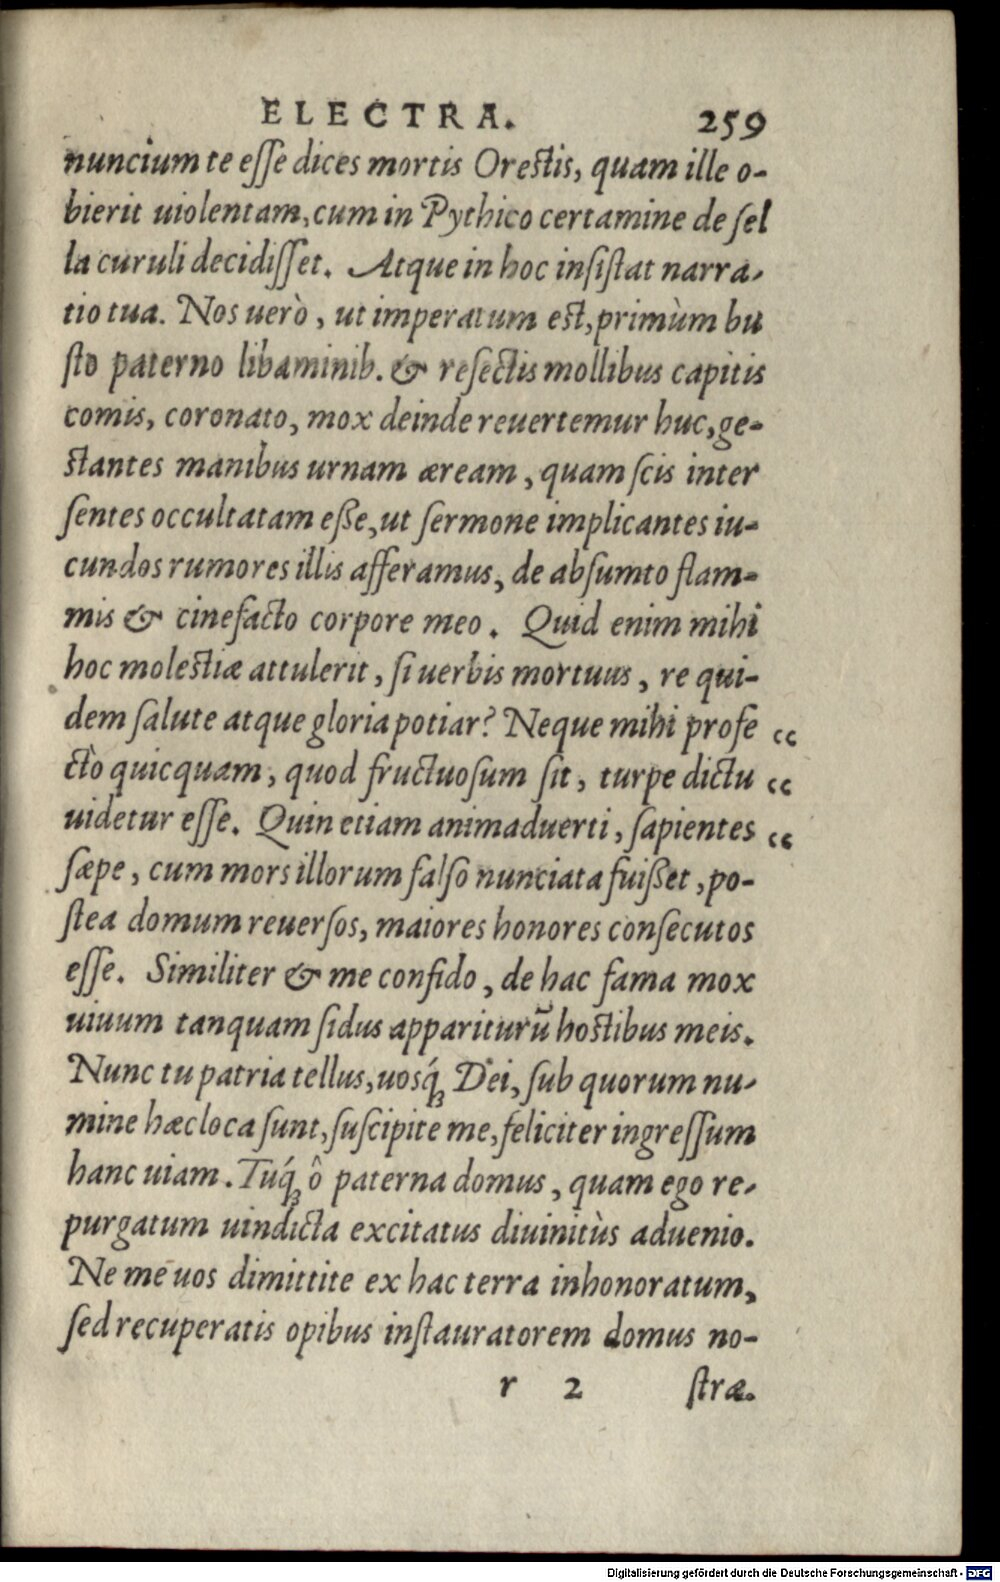 ELECTRA. 259
nuncium te esse dices mortis Orestis, quam ille o-
bierit uiolentam, cum in Pythico certamine de sel
la curuli decidisset. Atque in hoc insistat narra-
tio tua. Nos uerò, ut imperatum est, primùm bu
sto paterno libaminib. & resectis mollibus capitis
comis, coronato, mox deinde reuertemur huc, ge-
stantes manibus urnam æream, quam scis inter
sentes occultatam eße, ut sermone implicantes iu-
cundos rumores illis afferamus, de absumto flam-
mis & cinefacto corpore meo. Quid enim mihi
hoc molestiæ attulerit, si uerbis mortuus, re qui-
dem salute atque gloria potiar? Neque mihi profe “
ctò quicquam, quod fructuosum sit, turpe dictu “
uidetur esse. Quin etiam animaduerti, sapientes “
sæpe, cum mors illorum falsò nunciata fuißet, po-
stea domum reuersos, maiores honores consecutos
esse. Similiter & me confido, de hac fama mox
uiuum tanquam sidus appariturũ hostibus meis.
Nunc tu patria tellus, uosq́ꝫ Dei, sub quorum nu-
mine hæc loca sunt, suscipite me, feliciter ingressum
hanc uiam. Tuq́ꝫ ô paterna domus, quam ego re-
purgatum uindicta excitatus diuinitùs aduenio.
Ne me uos dimittite ex hac terra inhonoratum,
sed recuperatis opibus instauratorem domus no-
r 2 stræ.
Digitalisierung gefördert durch die Deutsche Forschungsgemeinschaft - DFG